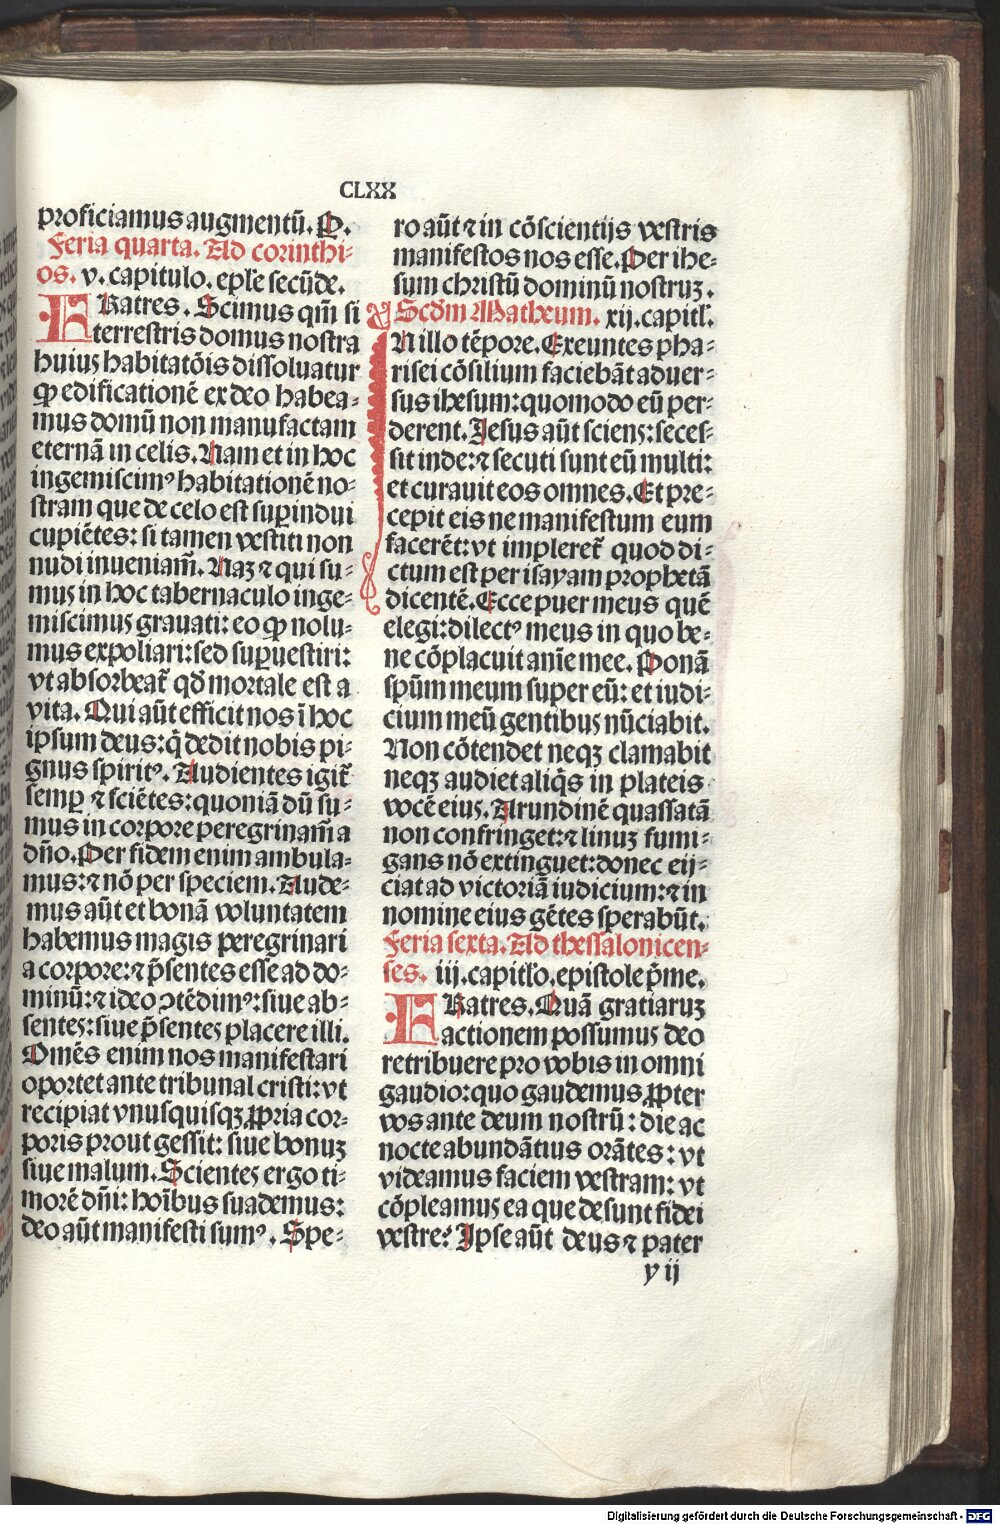 CLXX
proficiamus augmentū. P.
Feria quarta. Ad corinthi-
os. v. capitulo. eple secūde.
FRatres. Scimus qm̄ si
terrestris domus nostra
huius habitatōis dissoluatur
ꝙ edificationē ex deo habea-
mus domū non manufactam
eternā in celis. Nam et in hoc
ingemiscimꝰ habitationē no-
stram que de celo est suꝑindui
cupiētes: si tamen vestiti non
nudi inueniam̄. Naꝫ ⁊ qui su-
mus in hoc tabernaculo inge-
miscimus grauati: eo ꝙ nolu-
mus expoliari: sed suꝑuestiri:
vt absorbeat̄ qd̄ mortale est a
vita. Qui aūt efficit nos ī hoc
ipsum deus: q̄ dedit nobis pi-
gnus spiritꝰ. Audientes igit̄
sempꝑ ⁊ sciētes: quoniā dū su-
mus in corpore peregrinam̄ a
dn̄o. Per fidem enim ambula-
mus: ⁊ nō per speciem. Aude-
mus aūt et bonā voluntatem
habemus magis peregrinari
a corpore: ⁊ p̄sentes esse ad do-
minū: ⁊ ideo ꝯtēdimꝰ: siue ab-
sentes: siue p̄sentes placere illi.
Omēs enim nos manifestari
oportet ante tribunal cristi: vt
recipiat vnusquisqꝫ ꝓpria cor-
poris prout gessit: siue bonuꝫ
siue malum. Scientes ergo ti-
morē dn̄i: hoībus suademus:
deo aūt manifesti sumꝰ. Spe-
ro aūt ⁊ in cōscientijs vestris
manifestos nos esse. Per ihe-
sum christū dominū nostruꝫ.
Scd̄m Matheum. xij. capitl̄.
IN illo tēpore. Exeuntes pha-
risei cōsilium faciebāt aduer-
sus ihesum: quomodo eū per-
derent. Jesus aūt sciens: seces-
sit inde: ⁊ secuti sunt eū multi:
et curauit eos omnes. Et pre-
cepit eis ne manifestum eum
facerēt: vt impleret̄ quod di-
ctum est per isayam prophetā
dicentē. Ecce puer meus quē
elegi: dilectꝰ meus in quo be-
ne cōplacuit anīe mee. Ponā
spūm meum super eū: et iudi-
cium meū gentibus nūciabit.
Non cōtendet neqꝫ clamabit
neqꝫ audiet aliq̄s in plateis
vocē eius. Arundinē quassatā
non confringet: ⁊ linuꝫ fumi-
gans nō extinguet: donec eij-
ciat ad victoriā iudicium: ⁊ in
nomine eius gētes sperabūt.
Feria sexta. Ad thessalonicen-
ses. iij. capitl̄o. epistole p̄me.
FRatres. Quā gratiaruꝫ
actionem possumus deo
retribuere pro vobis in omni
gaudio: quo gaudemus ꝓpter
vos ante deum nostrū: die ac
nocte abundātius orātes: vt
videamus faciem vestram: vt
cōpleamus ea que desunt fidei
vestre? Ipse aūt deus ⁊ pater
y ij
Digitalisierung gefördert durch die Deutsche Forschungsgemeinschaft - DFG